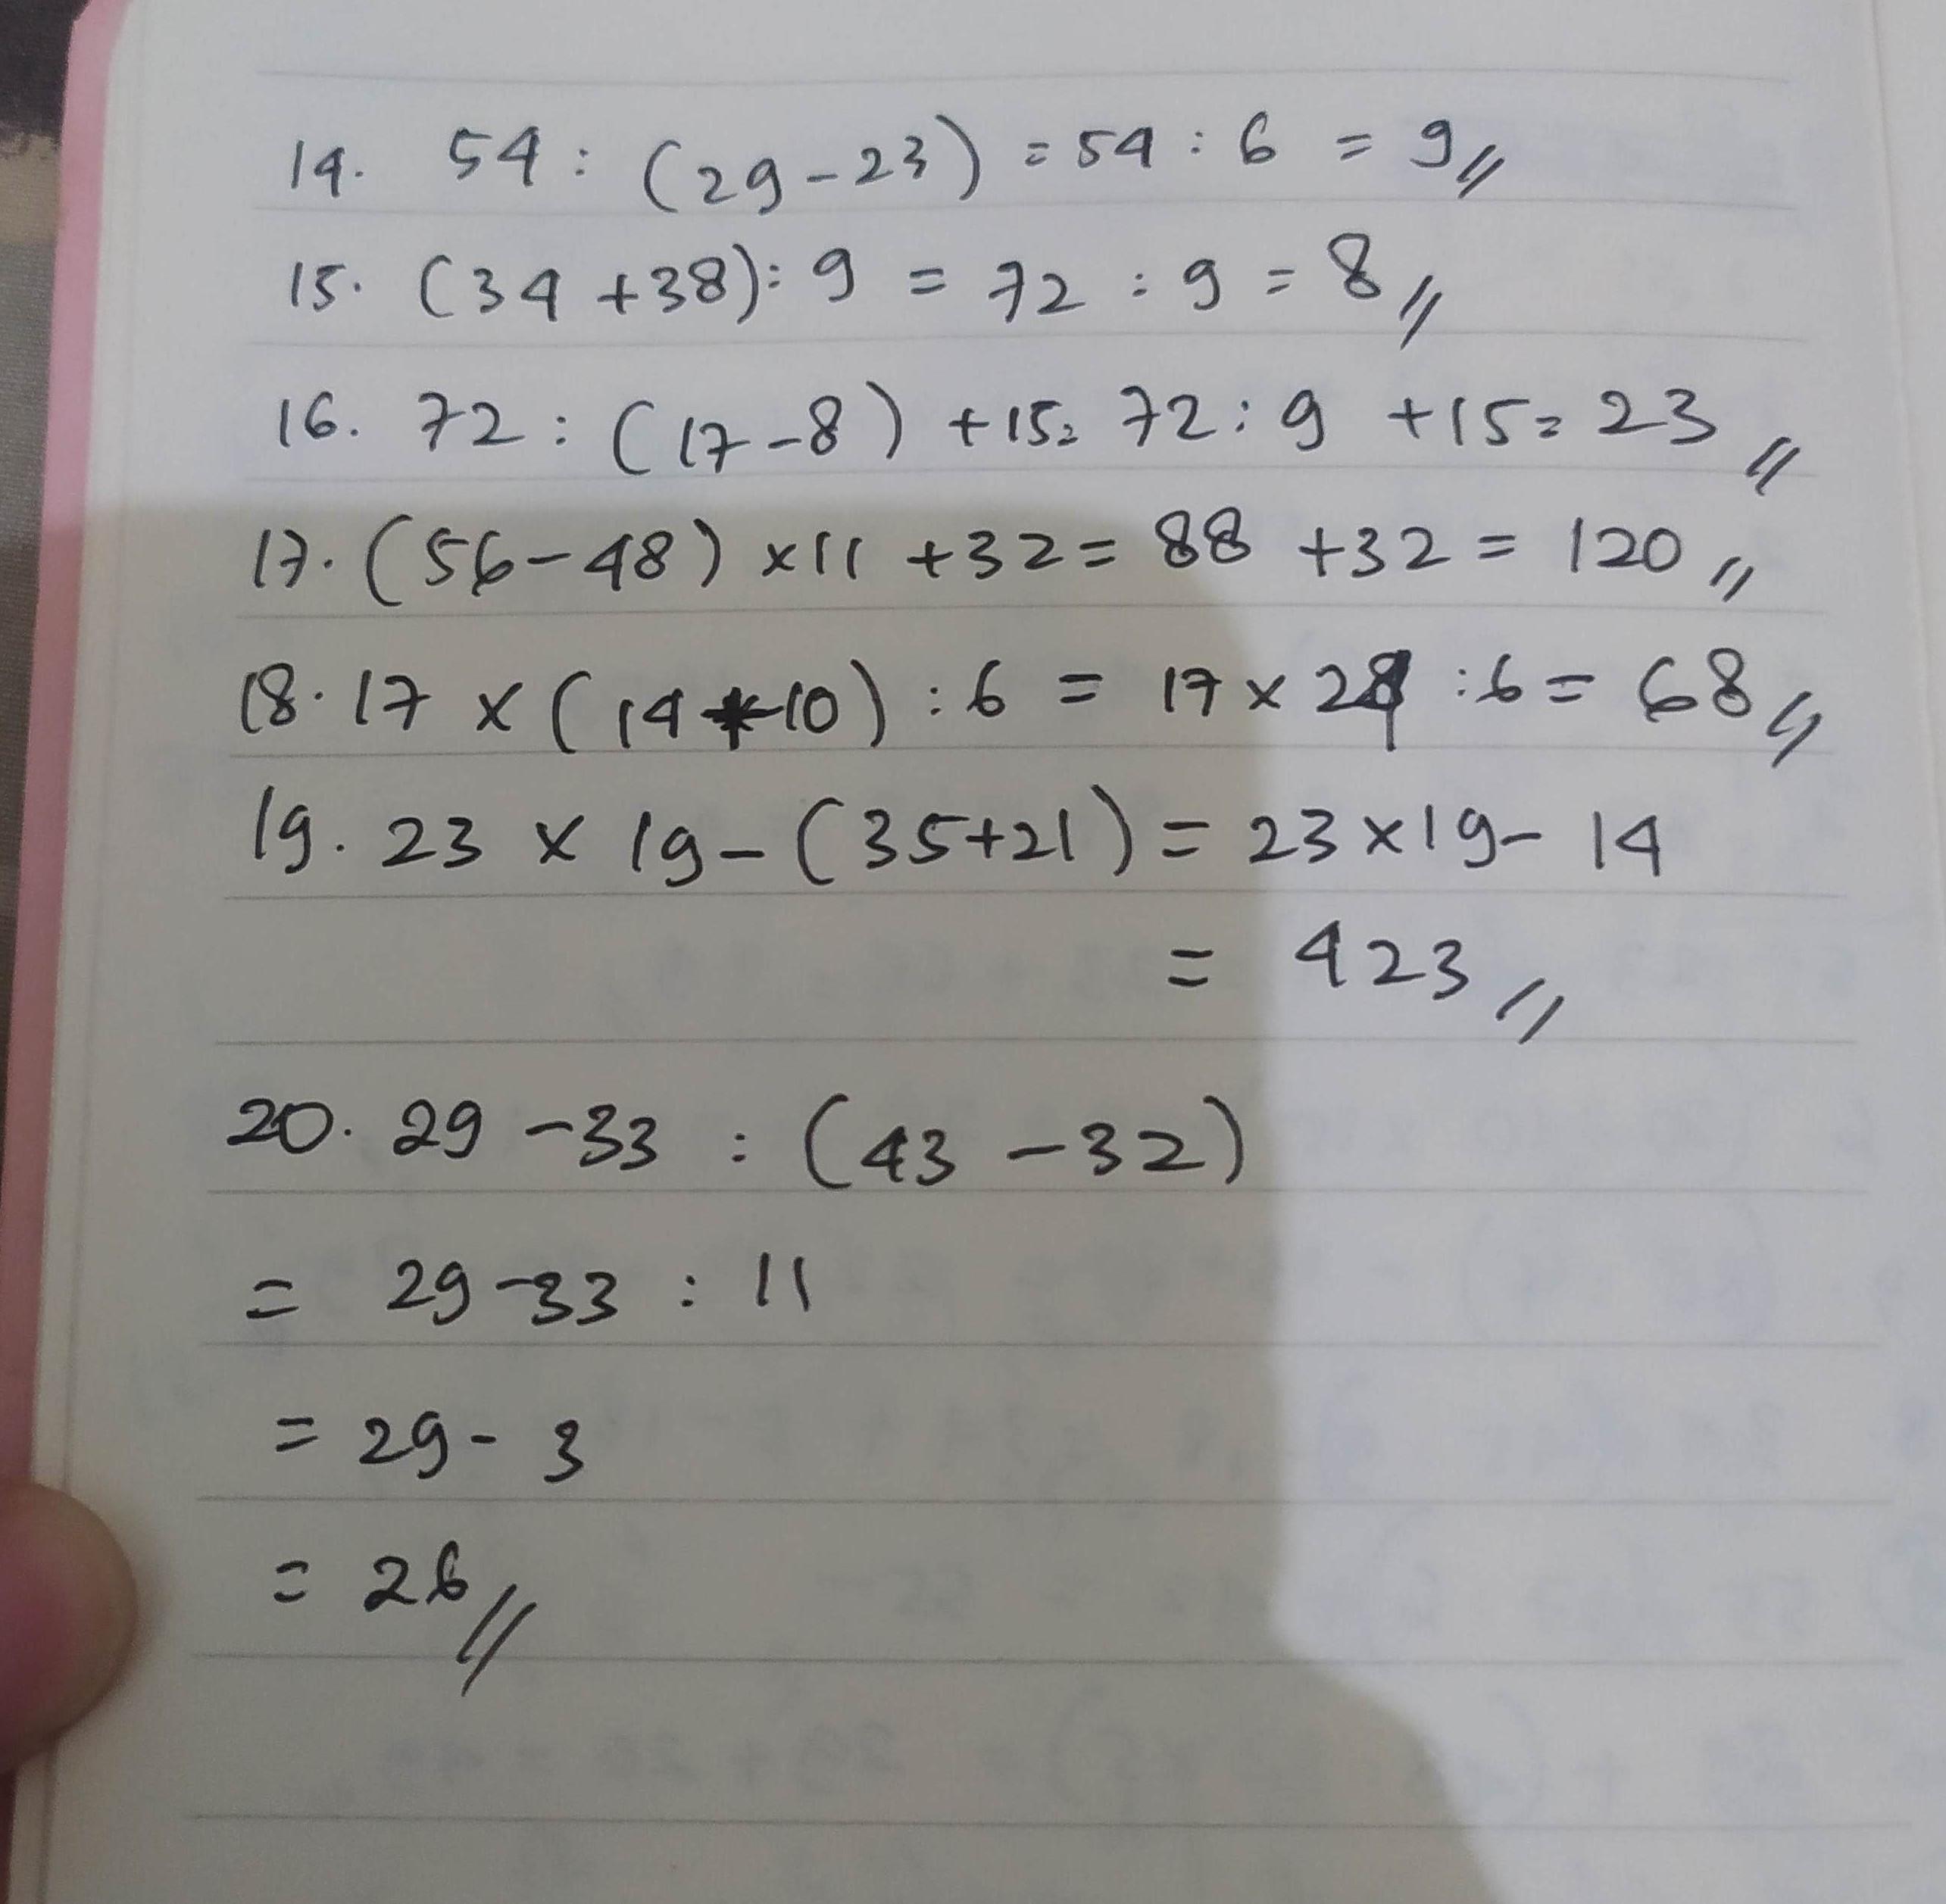 14. 54 : (29-23) = 54 : 6 = 9//
15. (34 +38) : 9 = 72 : 9 = 8//
16. 72 : (17-8) +15= 72 : 9 +15= 23//
17. (56-48) x11 +32= 88 +32 = 120//
18. 17 x (14+10) : 6 = 17 x 24 : 6 = 68//
19. 23 x 19-(35+21) = 23 x19- 14
= 423//
20. 29 -33 : (43 -32)
= 29-33 : 11
= 29- 3
= 26//